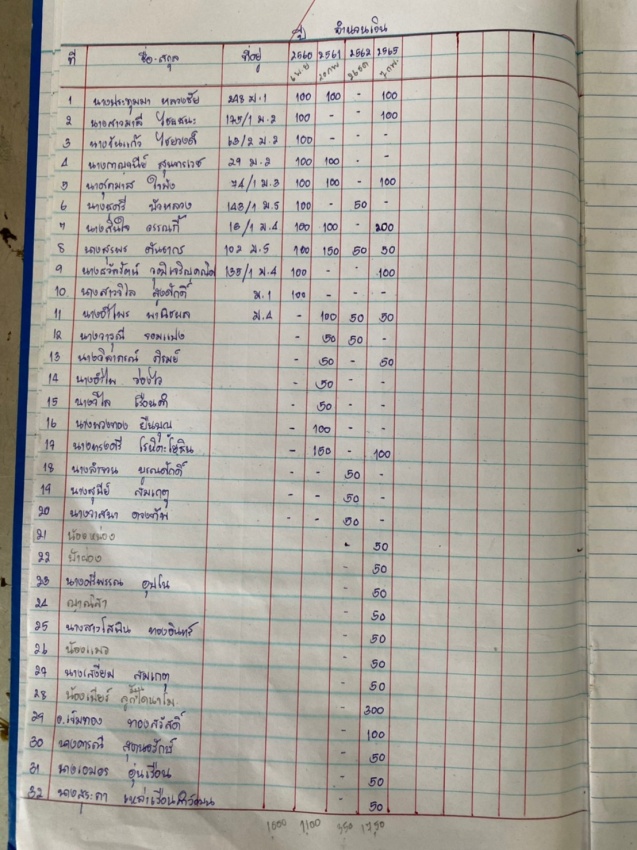 ปี จำนวนเงิน
ที่ ชื่อ-สกุล ที่อยู่ 2560 2561 2562 2565
1 นางประทุมมา หลวงชัย 248 ม.1 100 100 - 100
2 นางสาวมาลี ไชยชนะ 175/1 ม.2 100 - - 100
3 นางจันแก้ว ไชยวงค์ 63/2 ม.2 100 - -
4 นางกาญจนีย์ สุนทรเวช 29 ม.2 100 100 -
5 ใจฟอง 74/1 ม.3 100 100 - 100
6 บัวหลวง 143/1 ม.5 100 - 50
7 วรรณกี้ 18/1 ม.4 100 100 - 200
8 นางสุรพร ตันธาดร 102 ม.5 100 150 50 50
9 138/1 ม.4 100 - - 100
10 นางสาววิไล สูงศักดิ์ ม.1 100 - -
11 นางอำไพร พานิชผล ม.4 - 100 50 50
12 นางวารุณี จอมแปง - 50 50 -
13 นางวิลาภรณ์ ภิรมย์ - 50 - 50
14 นางอำไพ ว่องไว - 50 -
15 นางวิไล เรือนคำ - 50 -
16 นางพวงทอง ยืนบุญ - 100 -
17 - 150 - 100
18 นางลำจวน บูรณศักดิ์ - - 50
19 นางสุนีย์ สมเกตุ - - 50
20 นางวาสนา ดวงทิพ - - 50 -
21 น้องหน่อง - 50
22 ป้าผ่อง - 50
23 นางศรีพรรณ อุปโน - 50
24 ญาณิศา - 50
25 นางสาวโสภิน ทองอินทร์ - 50
26 น้องเมธ - 50
27 นางเสงี่ยม สมเกตุ - 50
28 น้องเบียร์ - 300
29 อ.เจิมทอง ทองสวัสดิ์ - 100
30 นางดารณี สุขนุรักษ์ - 50
31 นางเอมอร อุ่นเรือน - 50
32 - 50
1,000 1,100 350 1,750